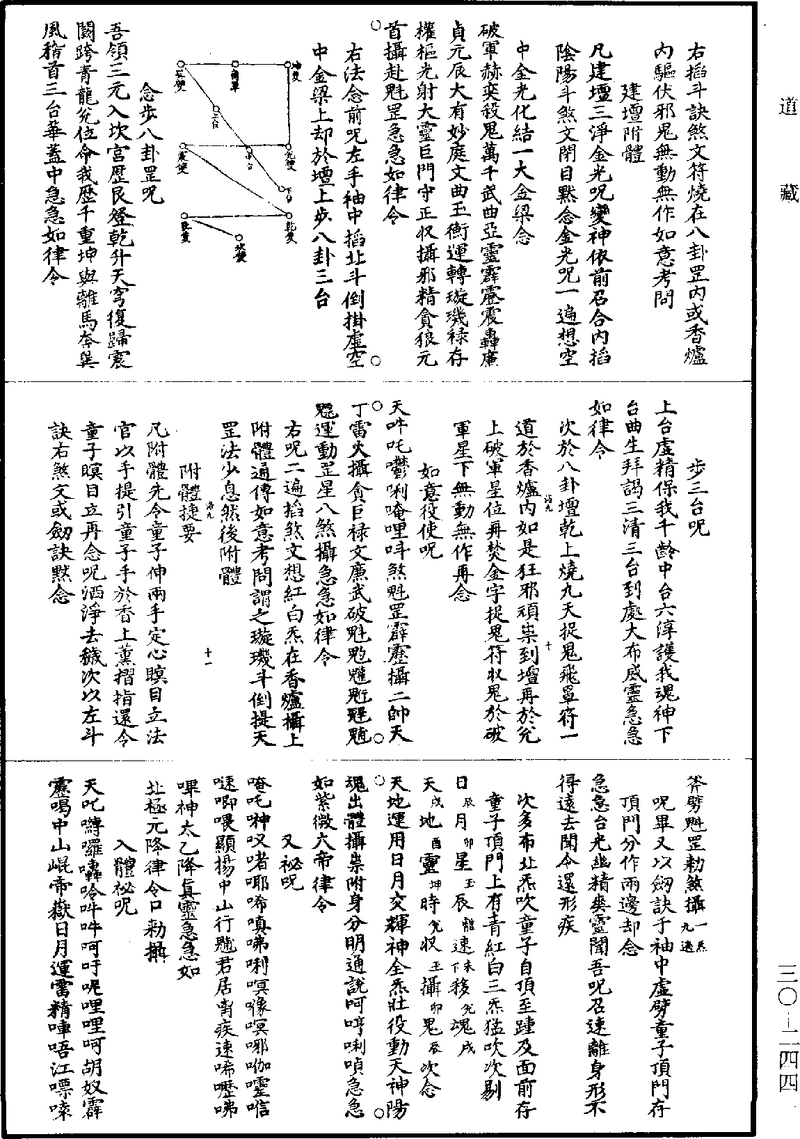 道藏
右搯斗訣煞文符燒在八卦罡內或香爐
內驅伏邪鬼無動無作如意考問
建壇附體
凡建壇三淨金光呪變神依前召合內搯
陰陽斗煞文閉目默念金光呪一遍想空
中金光化結一大金梁念
破軍赫奕殺鬼萬千武曲亞靈霹靂震轟廉
貞元辰大有妙庭文曲玉衡運轉璇璣祿存
權樞光射大靈巨門守正收攝邪精貪狼元
首攝赴魁罡急急如律令
右法念前呪左手袖中搯北斗倒掛虛空
中金梁上却於壇上步八卦三台
坤變
兌變
乾變
下台
中台
上台
坎變
震變
念步八卦罡呪
吾領三元入坎宮歷艮登乾升天穹復歸震
闕跨青龍兌位令我歷千重坤與離馬奔巽
風稽首三台華蓋中急急如律令
步三台呪
上台虛精保我千齡中台六淳護我魂神下
台曲生拜謁三清三台到處大布威靈急急
如律令
次於八卦壇乾上燒九天捉鬼飛罩符一
道於香爐內如是狂邪頑祟到壇再於兌
上破軍星位再焚金字捉鬼符收鬼於破
軍星下無動無作再念
如意役使呪
天吽吒欝唎唵哩呌煞魁罡霹靂攝二帥天
丁雷火攝貪巨祿文廉武破魁
運動罡星八煞攝急急如律令
右呪二遍搯煞文想紅白炁在香爐攝上
附體通傳如意考問謂之璇璣斗倒提天
罡法少息然後附體
十一
附體捷要
凡附體先令童子伸兩手定心瞑目立法
官以手提引童子手於香上薰摺指還令
童子瞑目立再念呪洒淨去穢次以左斗
訣右煞文或劍訣默念
斧劈魁罡勑煞攝一炁九遍
呪畢又以劍訣于袖中虛劈童子頂門存
頂門分作兩邊却念
急急台光幽精爽靈聞吾呪召速離身形不
得遠去聞令還形疾
次多布北炁吹童子自頂至踵及面前存
童子頂門上有青紅白三炁猛吹次剔
日辰月卯星玉辰離速未移兌魂戌
天戌地酉靈坤時兌收玉攝卯鬼辰次念
天地運用日月交輝神全炁壯役動天神陽
魂出體攝祟附身分明通說呵哼唎唝急急
如紫微大帝律令
又祕呪
唵吒𠰷叹啫耶唏嗔唏唎嗼
𠻃唧喂顯揚中山行號君居宵疾速唏嚦啼
嗶神太乙降真靈急急如
北極元降律令口勑攝
入體祕呪
天叱嚩囉轟唥吽吽呵吁呢哩哩呵胡奴霹
靂喝中山崐帝嶽日月運雷精唓唔江嘌㗱
三〇—二四四